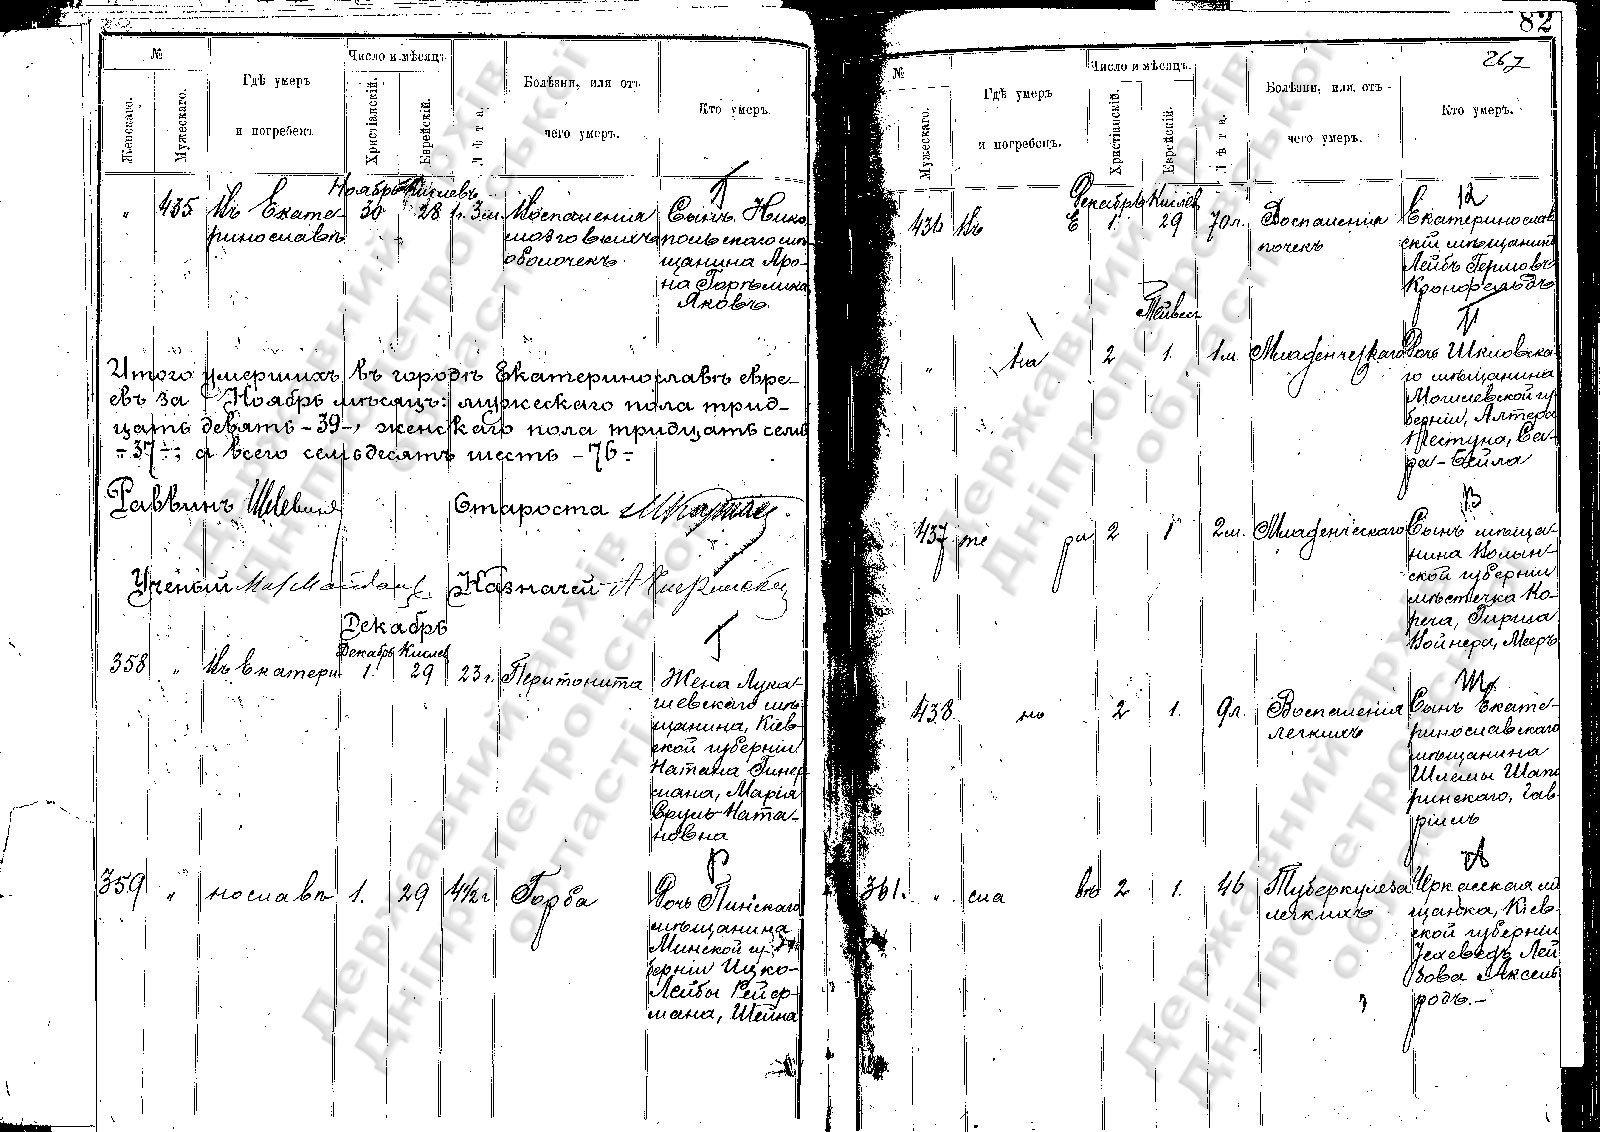 №
Женскаго.
Мужескаго.
Гдѣ умеръ
и погребенъ
Число и мѣсяцъ
Христіанскій.
Еврейскій.
Лѣта.
Болѣзни, или отъ
чего умеръ.
Кто умеръ.
Ноябрь Кислевъ
" 435 Въ Екате-
ринославѣ
30 28 1г. 3м.
Воспаленія
мозговыхъ
оболочекъ
Г
Сынъ Нико
польскаго мѣ-
щанина Аро-
на
Яковъ
Итого умершихъ въ городѣ Екатеринославѣ евре-
евъ за Ноябрь мѣсяцъ: мужескаго пола трид-
цать девять -39-, женскаго пола тридцать семь
-37-; а всего семьдесятъ шесть -76-
Раввинъ Староста
Ученый Казначей
Декабрь
Декабрь Кислев
358 " Въ Екатери 1. 29 23г. Перитонита
Г
Жена Лука-
шевскаго мѣ-
щанина, Кіев-
ской губерніи
Натана Гинер-
мана, Марія
Сруль-Ната-
новна
359 " нославѣ 1. 29 4½г Горба
Р
Дочь Пинскаго
мѣщанина
Минской гу-
берніи Ицко-
Лейбы Рейер-
мана, Шейна
82
267
№
Мужескаго.
Гдѣ умеръ
и погребенъ.
Число и мѣсяцъ.
Христіанскій.
Еврейскій.
Лѣта.
Болѣзни, или отъ-
чего умеръ.
Кто умеръ.
Декабрь Кислев
436 Въ Е 1. 29 70л. Воспаленія
почекъ
К
Екатеринослав
скій мѣщанинъ
Лейбъ Гершовъ
Кронфельдъ
Тейвесъ
" 2 1. 1м. Младенческаго
Дочь Шкловска-
го мѣщанина
Могилевской гу-
берніи, Алтера
Са-
ра-Бейла
437 те ри 2 1 2м. Младенческаго
В
Сынъ мѣща-
нина Волын-
ской губерніи
мѣстечка Ко-
реца, Гирша
Войнера, Мееръ
438. но 2 1. 9л. Воспаленія
легкихъ
Ш
Сынъ Екате-
ринославскаго
мѣщанина
Шлемы Шап-
ринскаго, Гав-
ріилъ
361. " сла вѣ 2 1. 46 Туберкулеза
легкихъ
А
Черкасская мѣ
щанка, Кіев-
ской губерніи
Іехеведъ Лей
бова Аксель
родъ.-